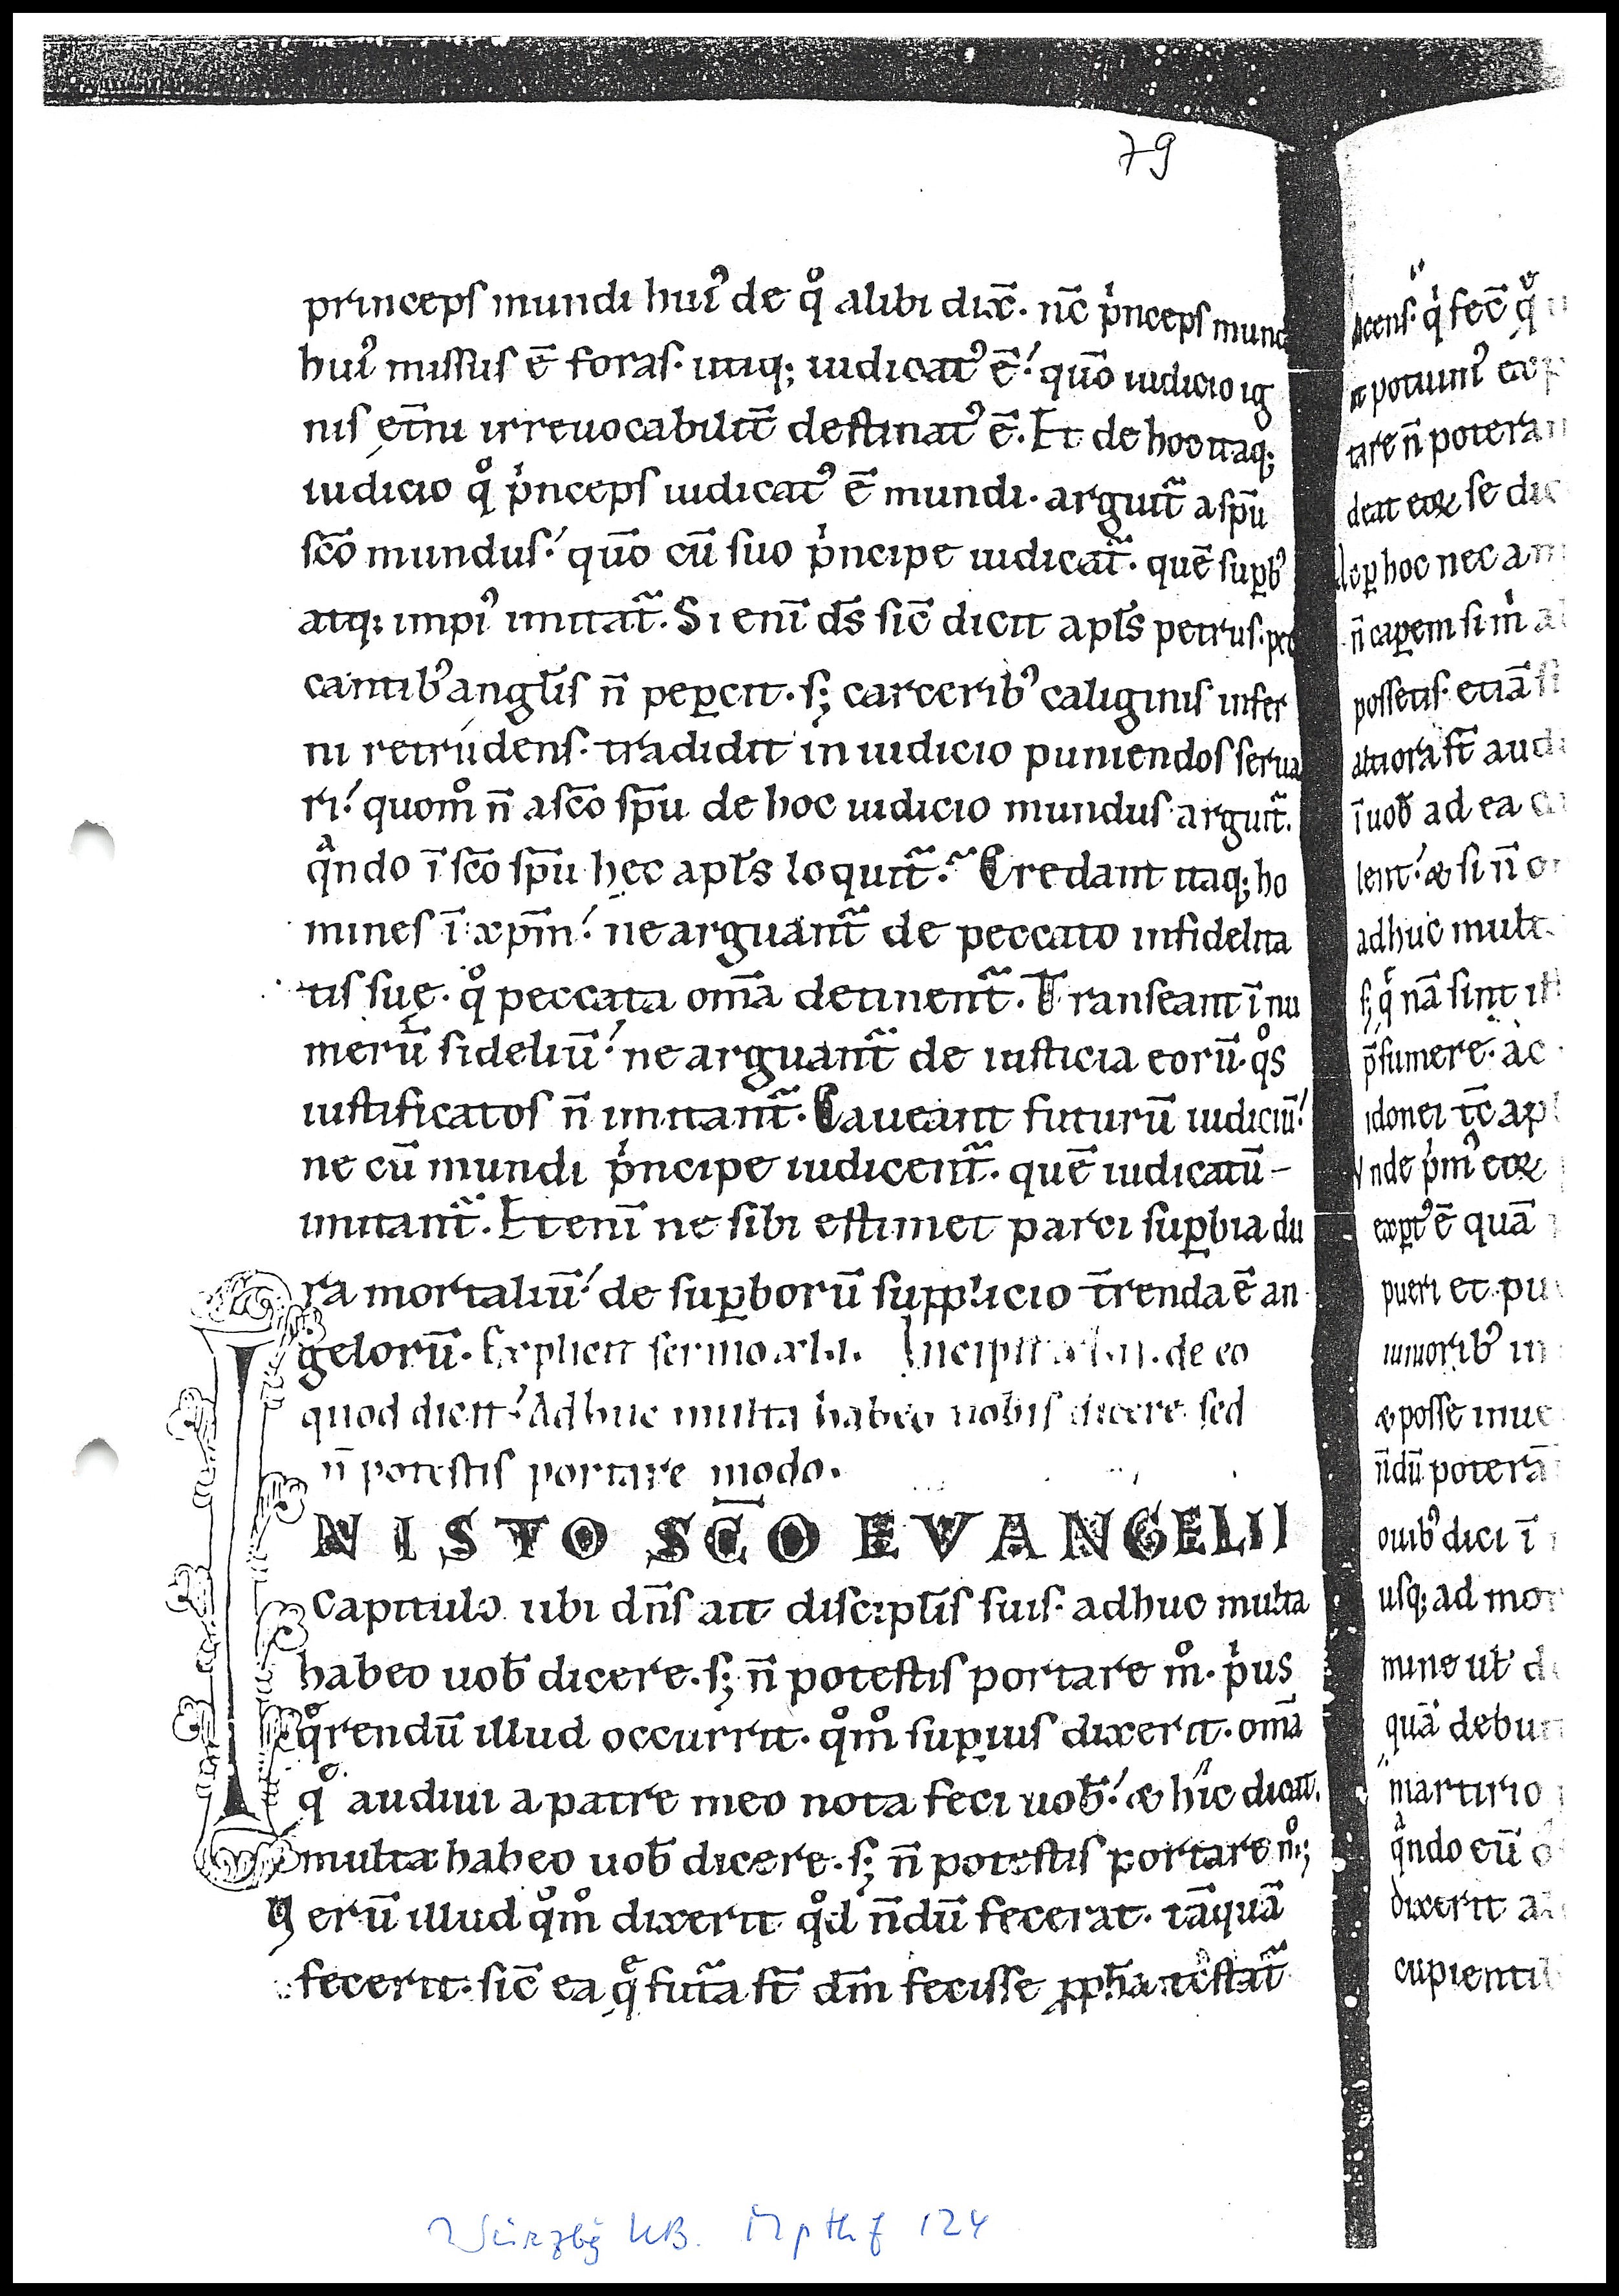 79
princeps mundi huiꝰ de qͦ alibi dix̅. nc̅ pͥnceps mund
huiꝰ missus ē foras. utiq; iudicatꝰ ē. quō iudicio ig
nis et̅ni irreuocabilit̅ destinatꝰ ē. Et de hoc itaq;
iudicio qͦ pͥnceps iudicatꝰ ē mundi. arguit̃ a sp̅u
sc̅o mundus. quō cū suo pͥncipe iudicat̃. quē supbꝰ
atq; impiꝰ imitat̃. Si eni̅ ds̅ sic̅ dicit apl̅s petrus. pec
cantibꝰ angl̅is n̅ peꝑcit. s; carceribꝰ caliginis infer
ni retrudens. tradidit in iudicio puniendos serua
ri. quomͦ n̅ a sc̅o sp̅u de hoc iudicio mundus arguit̃.
qͣndo ī sc̅o sp̅u hęc apl̅s loquit̃. Credant itaq; ho
mines ī xp̅m. ne arguant̃ de peccato infidelita
tis suę. qͦ peccata om̅a detinent̃. Transeant ī nu
merū fideliū. ne arguant̃ de iusticia eorū. qͦs
iustificatos n̅ imitant̃. Caueant futurū iudiciū.
ne cū mundi pͥncipe iudicent̃. quē iudicatū
imitant̃. Et eni̅ ne sibi estimet parci suꝑbia du
ra mortaliū. de suꝑborū supplicio t̅renda ē an
gelorū. Explicit sermo xl.i. Incipit xl.ii. de eo
quod dicit. Adhuc multa habeo uobis dicere sed
n̅ potestis portare modo.
IN ISTO SC̅O EVANGELII
capitulo ubi dn̅s ait discipl̅is suis. adhuc multa
habeo uob̅ dicere. s; n̅ potestis portare mͦ. pͥus
qͣrendū illud occurrit. qͦmͦ suꝑius dixerit. om̅a
qͨ audiui a patre meo nota feci uob̅. & hic dicat.
multa habeo uob̅ dicere. s; n̅ potestis portare mͦ;
Verū illud qͦmͦ dixerit qͦd n̅dū fecerat. tāquā
fecerit. sic̅ ea qͣ fut̃a st̅ dm̅ fecisse ꝓph̅a testat̃
icens. qͥ fec̅ qͣ
tare n̅ potera
deat eoꝝ se dic
ꝑ hoc nec am
n̅ caꝑem si mͥ al
possetis. etiā si
altiora st̅ aud
ī uob̅ ad ea ca
lent. & si n̅ o
adhuc mult
s; qͣ nā sint il
p̅sumere. ac
idonei t̅c ap
Vnde pͥmꝰ eoꝝ
exꝑtꝰ ē quā
pueri et pu
iunioribꝰ in
& posse inue
n̅dū poterā
ouibꝰ dici ī
usq; ad mor
mine ul̅ de
quā debu
martirio
qͣndo eū
dixerit a
cupienti
Würzbg UB. Mpthf 124